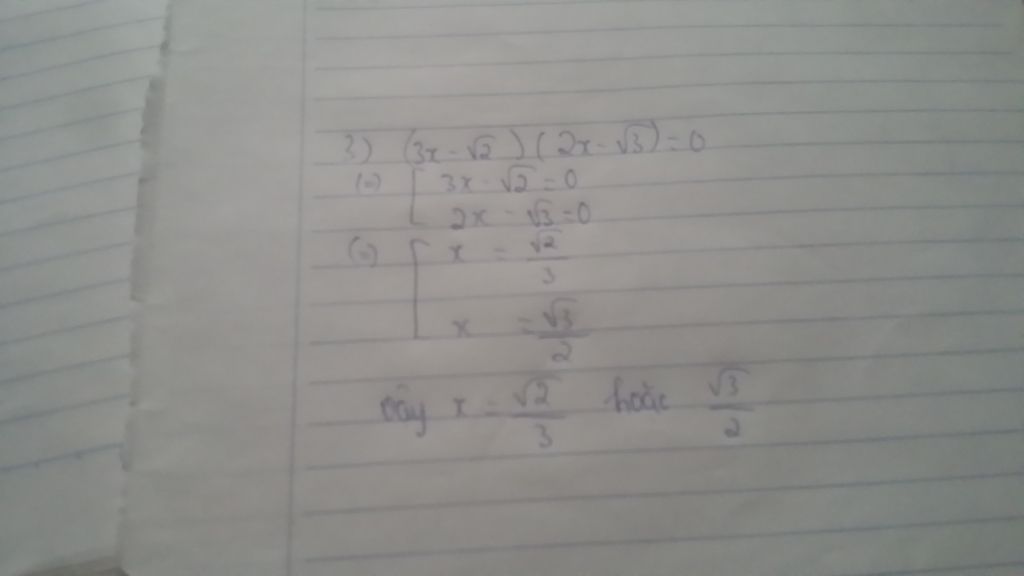 3) (3x - √2)(2x - √3) = 0
(=) [ 3x - √2 = 0
2x - √3 = 0
(=) [ x = √2/3
x = √3/2
vậy x = √2/3 hoặc √3/2